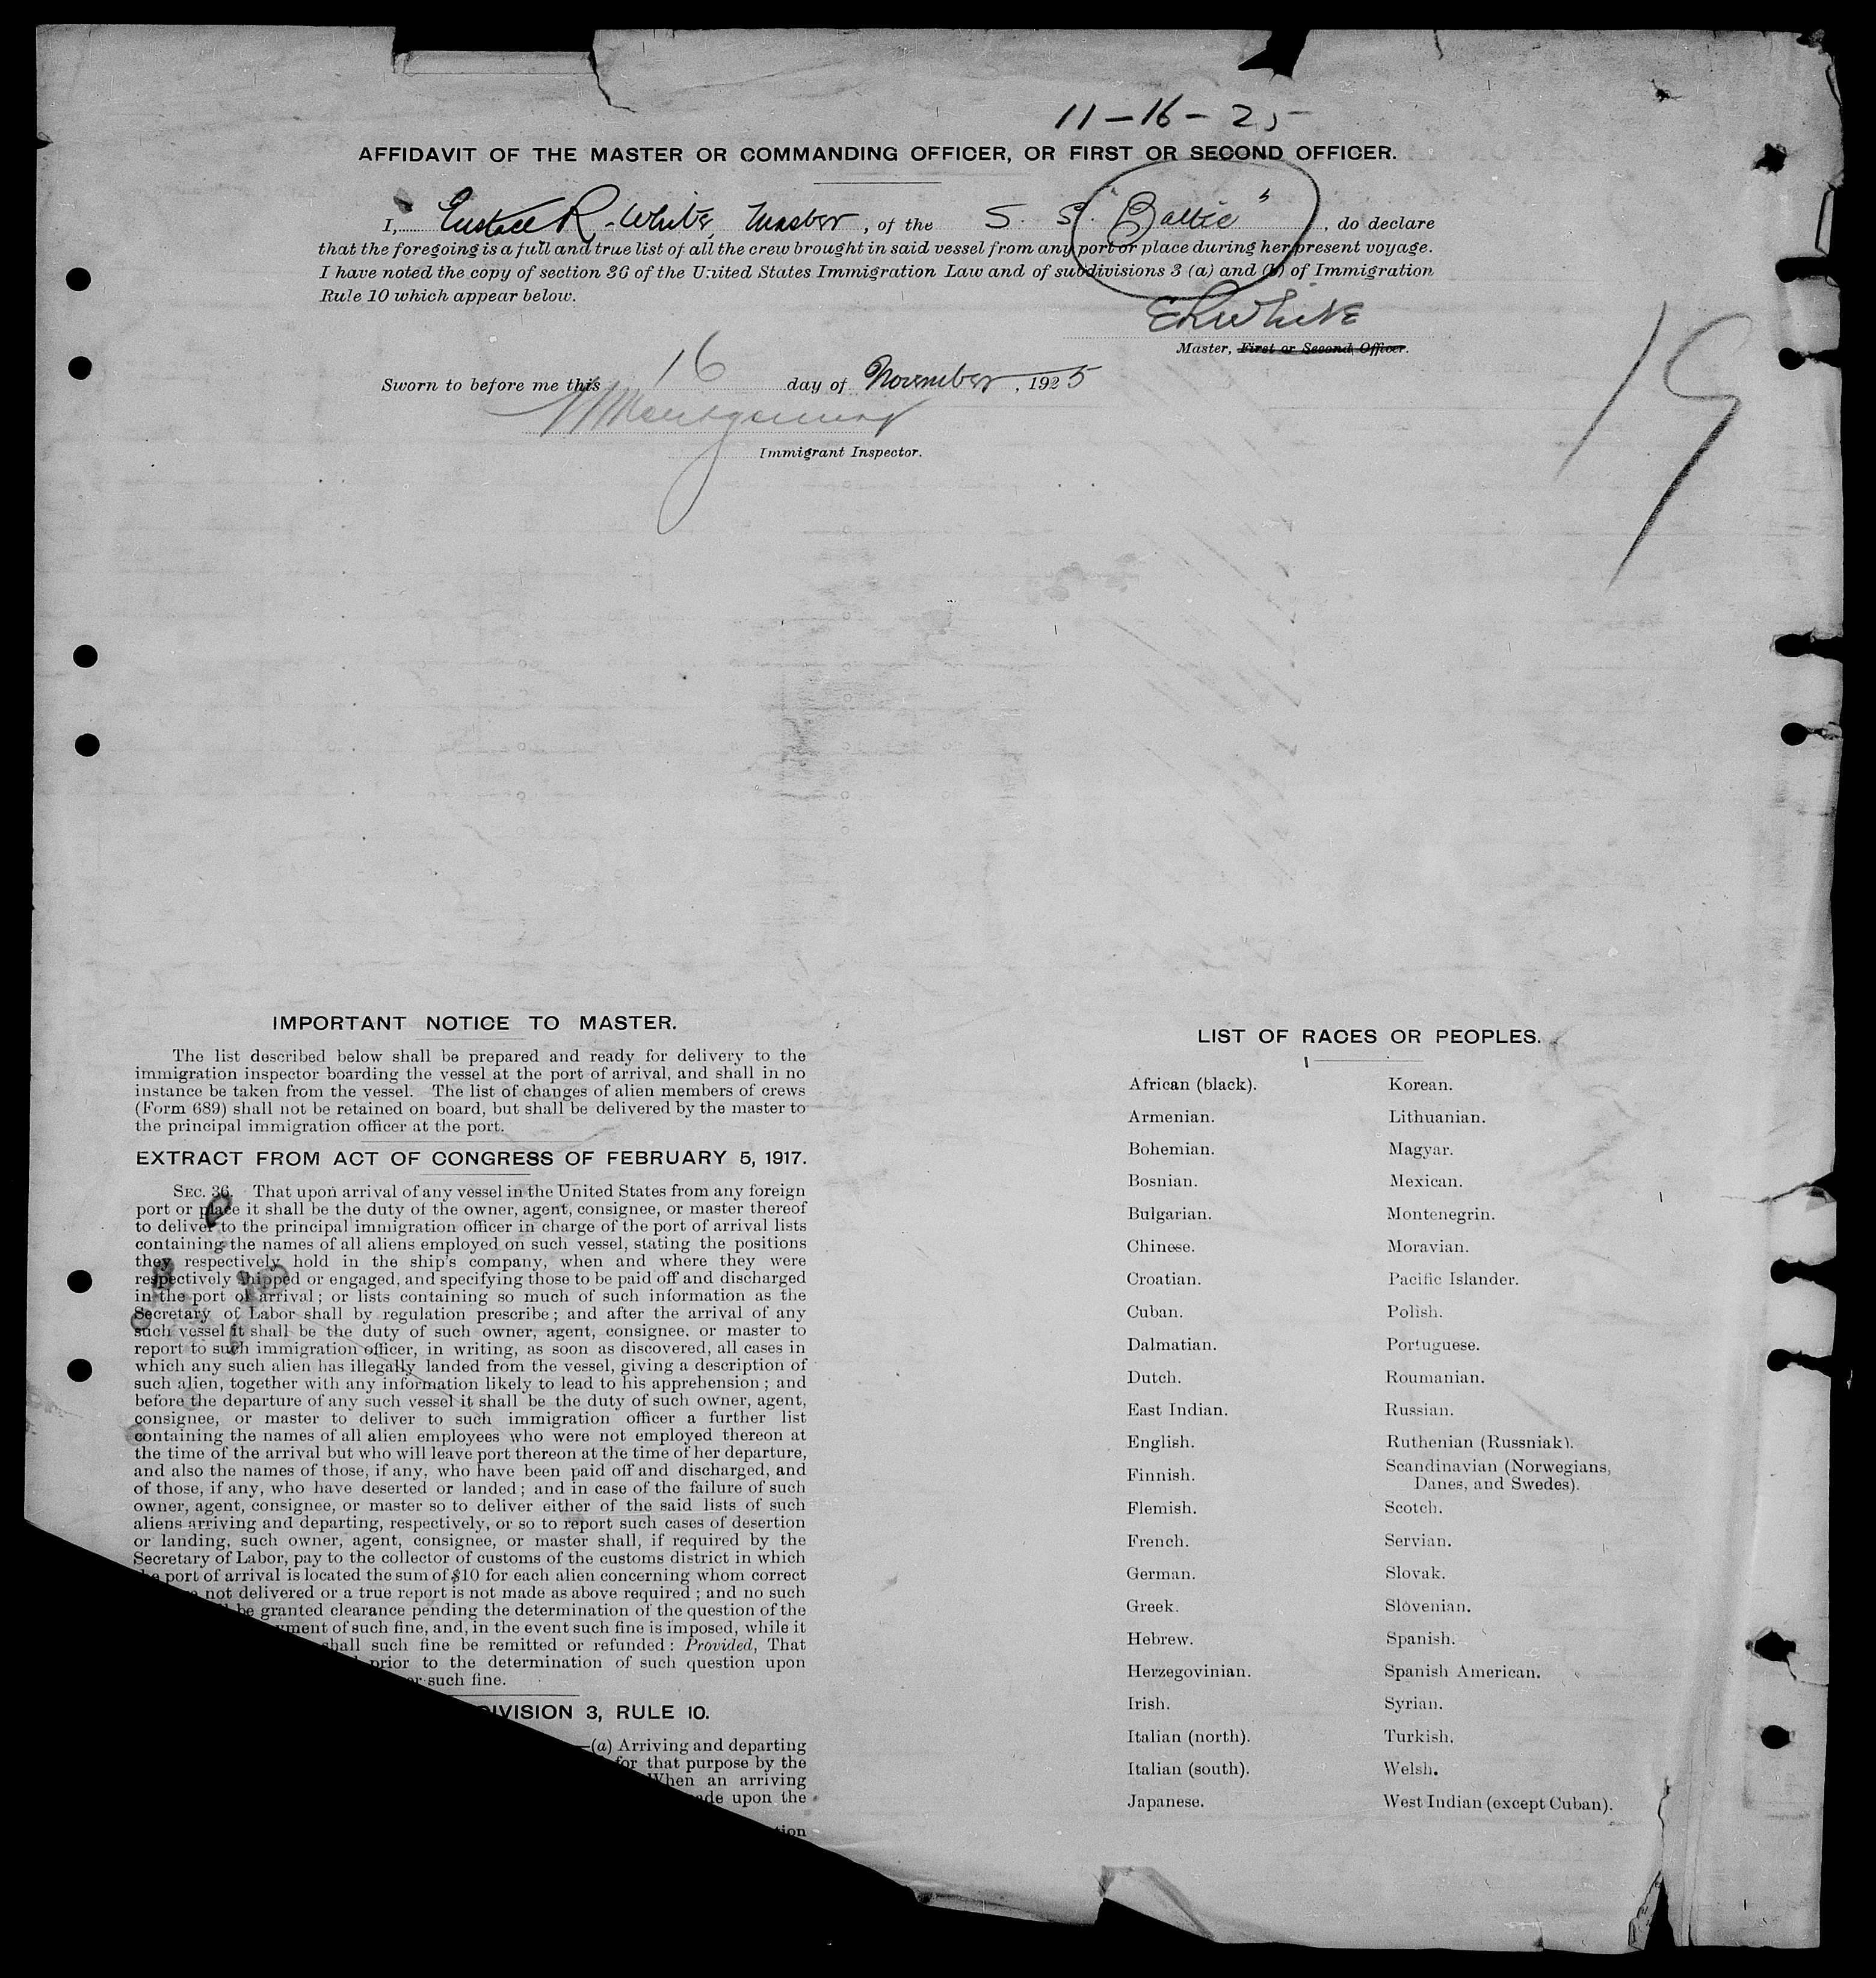 11-16-25
AFFIDAVIT OF THE MASTER OR COMMANDING OFFICER, OR FIRST OR SECOND OFFICER.
I, Eustace R. White, Master, of the S. S. "Baltic", do declare
that the foregoing is a full and true list of all the crew brought in said vessel from any port or place during her present voyage.
I have noted the copy of section 36 of the United States Immigration Law and of subdivisions 3 (a) and (b) of Immigration
Rule 10 which appear below.
ERWhite
Master, First or Second Officer.
19
Sworn to before me this 16 day of November, 1925
Montgomery
Immigrant Inspector.
IMPORTANT NOTICE TO MASTER.
The list described below shall be prepared and ready for delivery to the
immigration inspector boarding the vessel at the port of arrival, and shall in no
instance be taken from the vessel. The list of changes of alien members of crews
(Form 689) shall not be retained on board, but shall be delivered by the master to
the principal immigration officer at the port.
EXTRACT FROM ACT OF CONGRESS OF FEBRUARY 5, 1917.
SEC. 36. That upon arrival of any vessel in the United States from any foreign
port or place it shall be the duty of the owner, agent, consignee, or master thereof
to deliver to the principal immigration officer in charge of the port of arrival lists
containing the names of all aliens employed on such vessel, stating the positions
they respectively hold in the ship's company, when and where they were
respectively shipped or engaged, and specifying those to be paid off and discharged
in the port of arrival; or lists containing so much of such information as the
Secretary of Labor shall by regulation prescribe; and after the arrival of any
such vessel it shall be the duty of such owner, agent, consignee, or master to
report to such immigration officer, in writing, as soon as discovered, all cases in
which any such alien has illegally landed from the vessel, giving a description of
such alien, together with any information likely to lead to his apprehension; and
before the departure of any such vessel it shall be the duty of such owner, agent,
consignee, or master to deliver to such immigration officer a further list
containing the names of all alien employees who were not employed thereon at
the time of the arrival but who will leave port thereon at the time of her departure,
and also the names of those, if any, who have been paid off and discharged, and
of those, if any, who have deserted or landed; and in case of the failure of such
owner, agent, consignee, or master so to deliver either of the said lists of such
aliens arriving and departing, respectively, or so to report such cases of desertion
or landing, such owner, agent, consignee, or master shall, if required by the
Secretary of Labor, pay to the collector of customs of the customs district in which
port of arrival is located the sum of $10 for each alien concerning whom correct
not delivered or a true report is not made as above required; and no such
be granted clearance pending the determination of the question of the
of such fine, and, in the event such fine is imposed, while it
shall such fine be remitted or refunded: Provided, That
prior to the determination of such question upon
such fine.
DIVISION 3, RULE 10.
—(a) Arriving and departing
for that purpose by the
When an arriving
upon the
LIST OF RACES OR PEOPLES.
African (black).
Armenian.
Bohemian.
Bosnian.
Bulgarian.
Chinese.
Croatian.
Cuban.
Dalmatian.
Dutch.
East Indian.
English.
Finnish.
Flemish.
French.
German.
Greek.
Hebrew.
Herzegovinian.
Irish.
Italian (north).
Italian (south).
Japanese.
Korean.
Lithuanian.
Magyar.
Mexican.
Montenegrin.
Moravian.
Pacific Islander.
Polish.
Portuguese.
Roumanian.
Russian.
Ruthenian (Russniak).
Scandinavian (Norwegians,
Danes, and Swedes).
Scotch.
Servian.
Slovak.
Slovenian.
Spanish.
Spanish American.
Syrian.
Turkish.
Welsh.
West Indian (except Cuban).